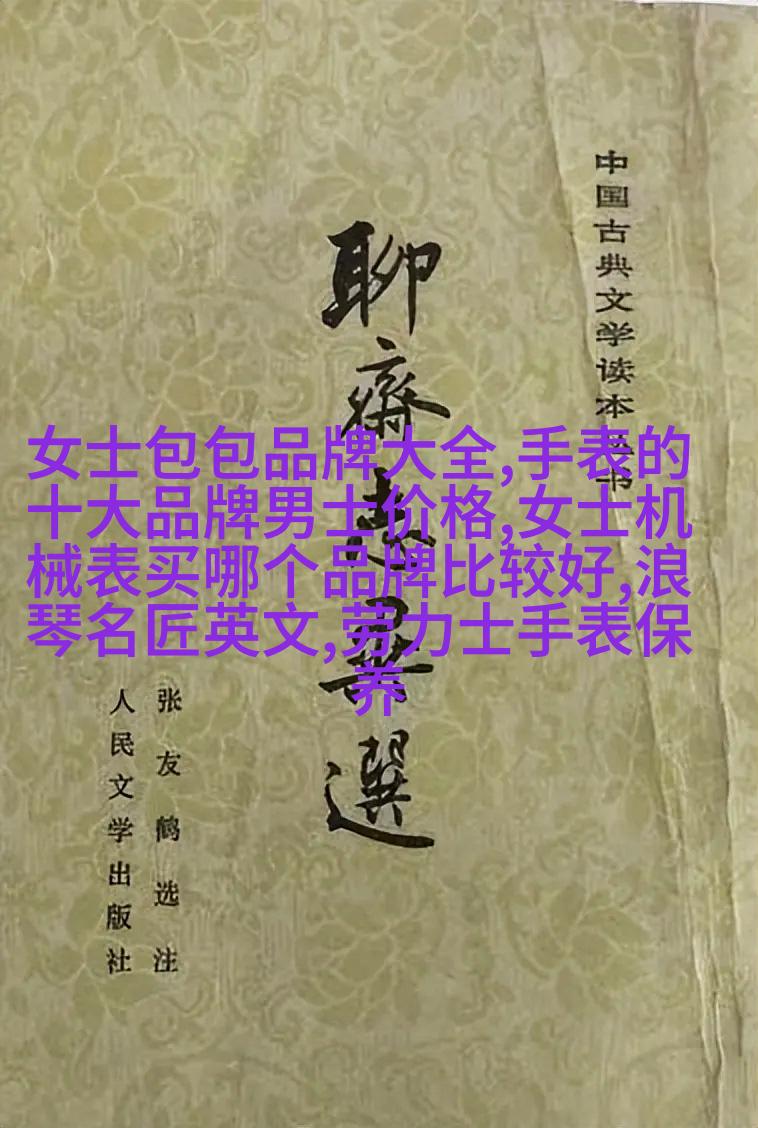 中国古典文学读本丛书
聊齋志異選
女士包包品牌大全,手表的
十大品牌男士价格,女士机
械表买哪个品牌比较好,浪
琴名匠英文,劳力士手表保
养
张友鹤选注
人民文学出版社